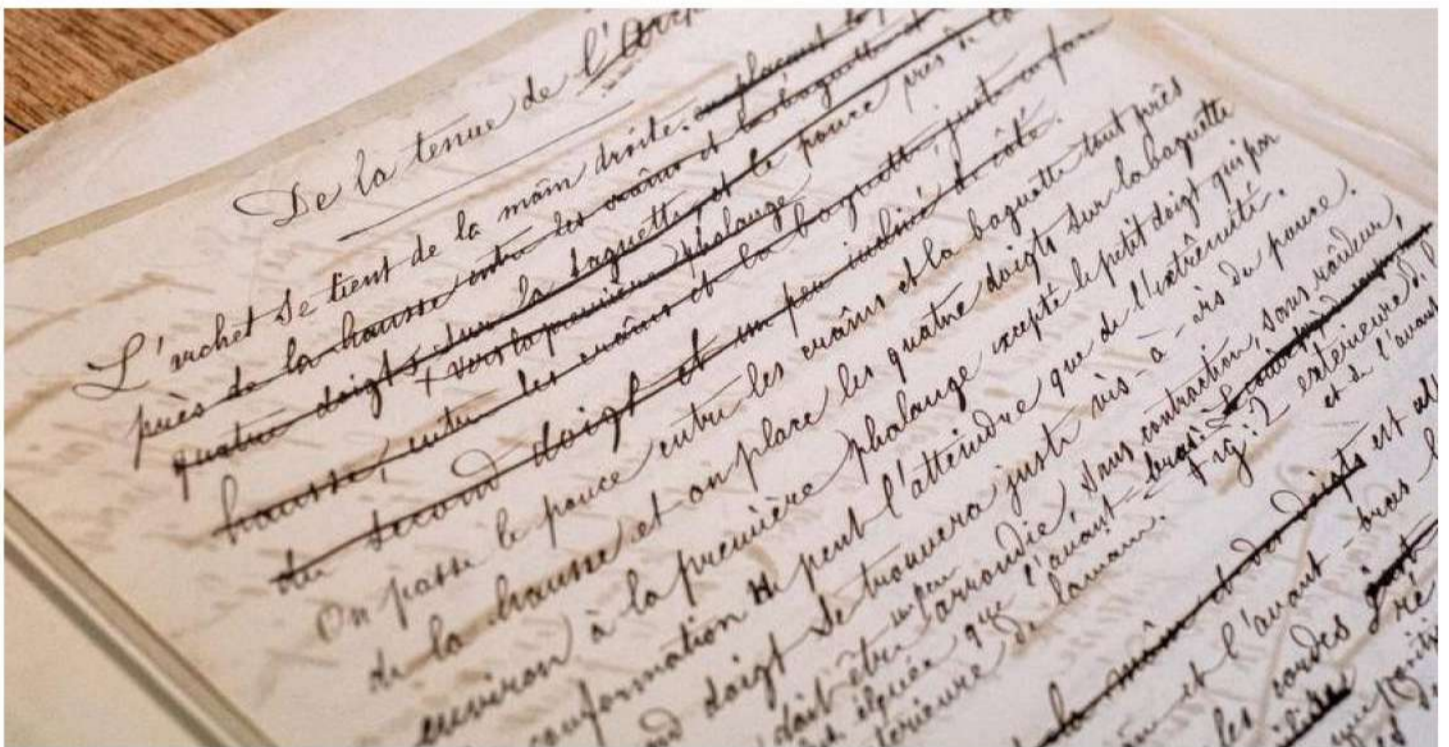 De la tenue de l'Arch
L'archet se tient de la main droite. en plaçant le
près de la hausse entre les crains et la baguette et
quatre doigts sur la baguette, et le pouce près de la
+ vers la première phalange
hausse, entre les crains et la baguette, juste en face
du second doigt et un peu incliné de côté.
On passe le pouce entre les crains et la baguette tout près
de la hausse et on place les quatre doigts sur la baguette
environ à la première phalange excepté le petit doigt qui par
conformation ne peut l'atteindre que de l'extrémité.
nd doigt se trouvera juste vis-à-vis du pouce.
doit être un peu arrondie, sans contraction, sans roideur,
éloignée que l'avant-bras. Le coude
térieure de la main. extérieure de l
et de l'avant
la main et des doigts est al
in et l'avant-bras l
les cordes